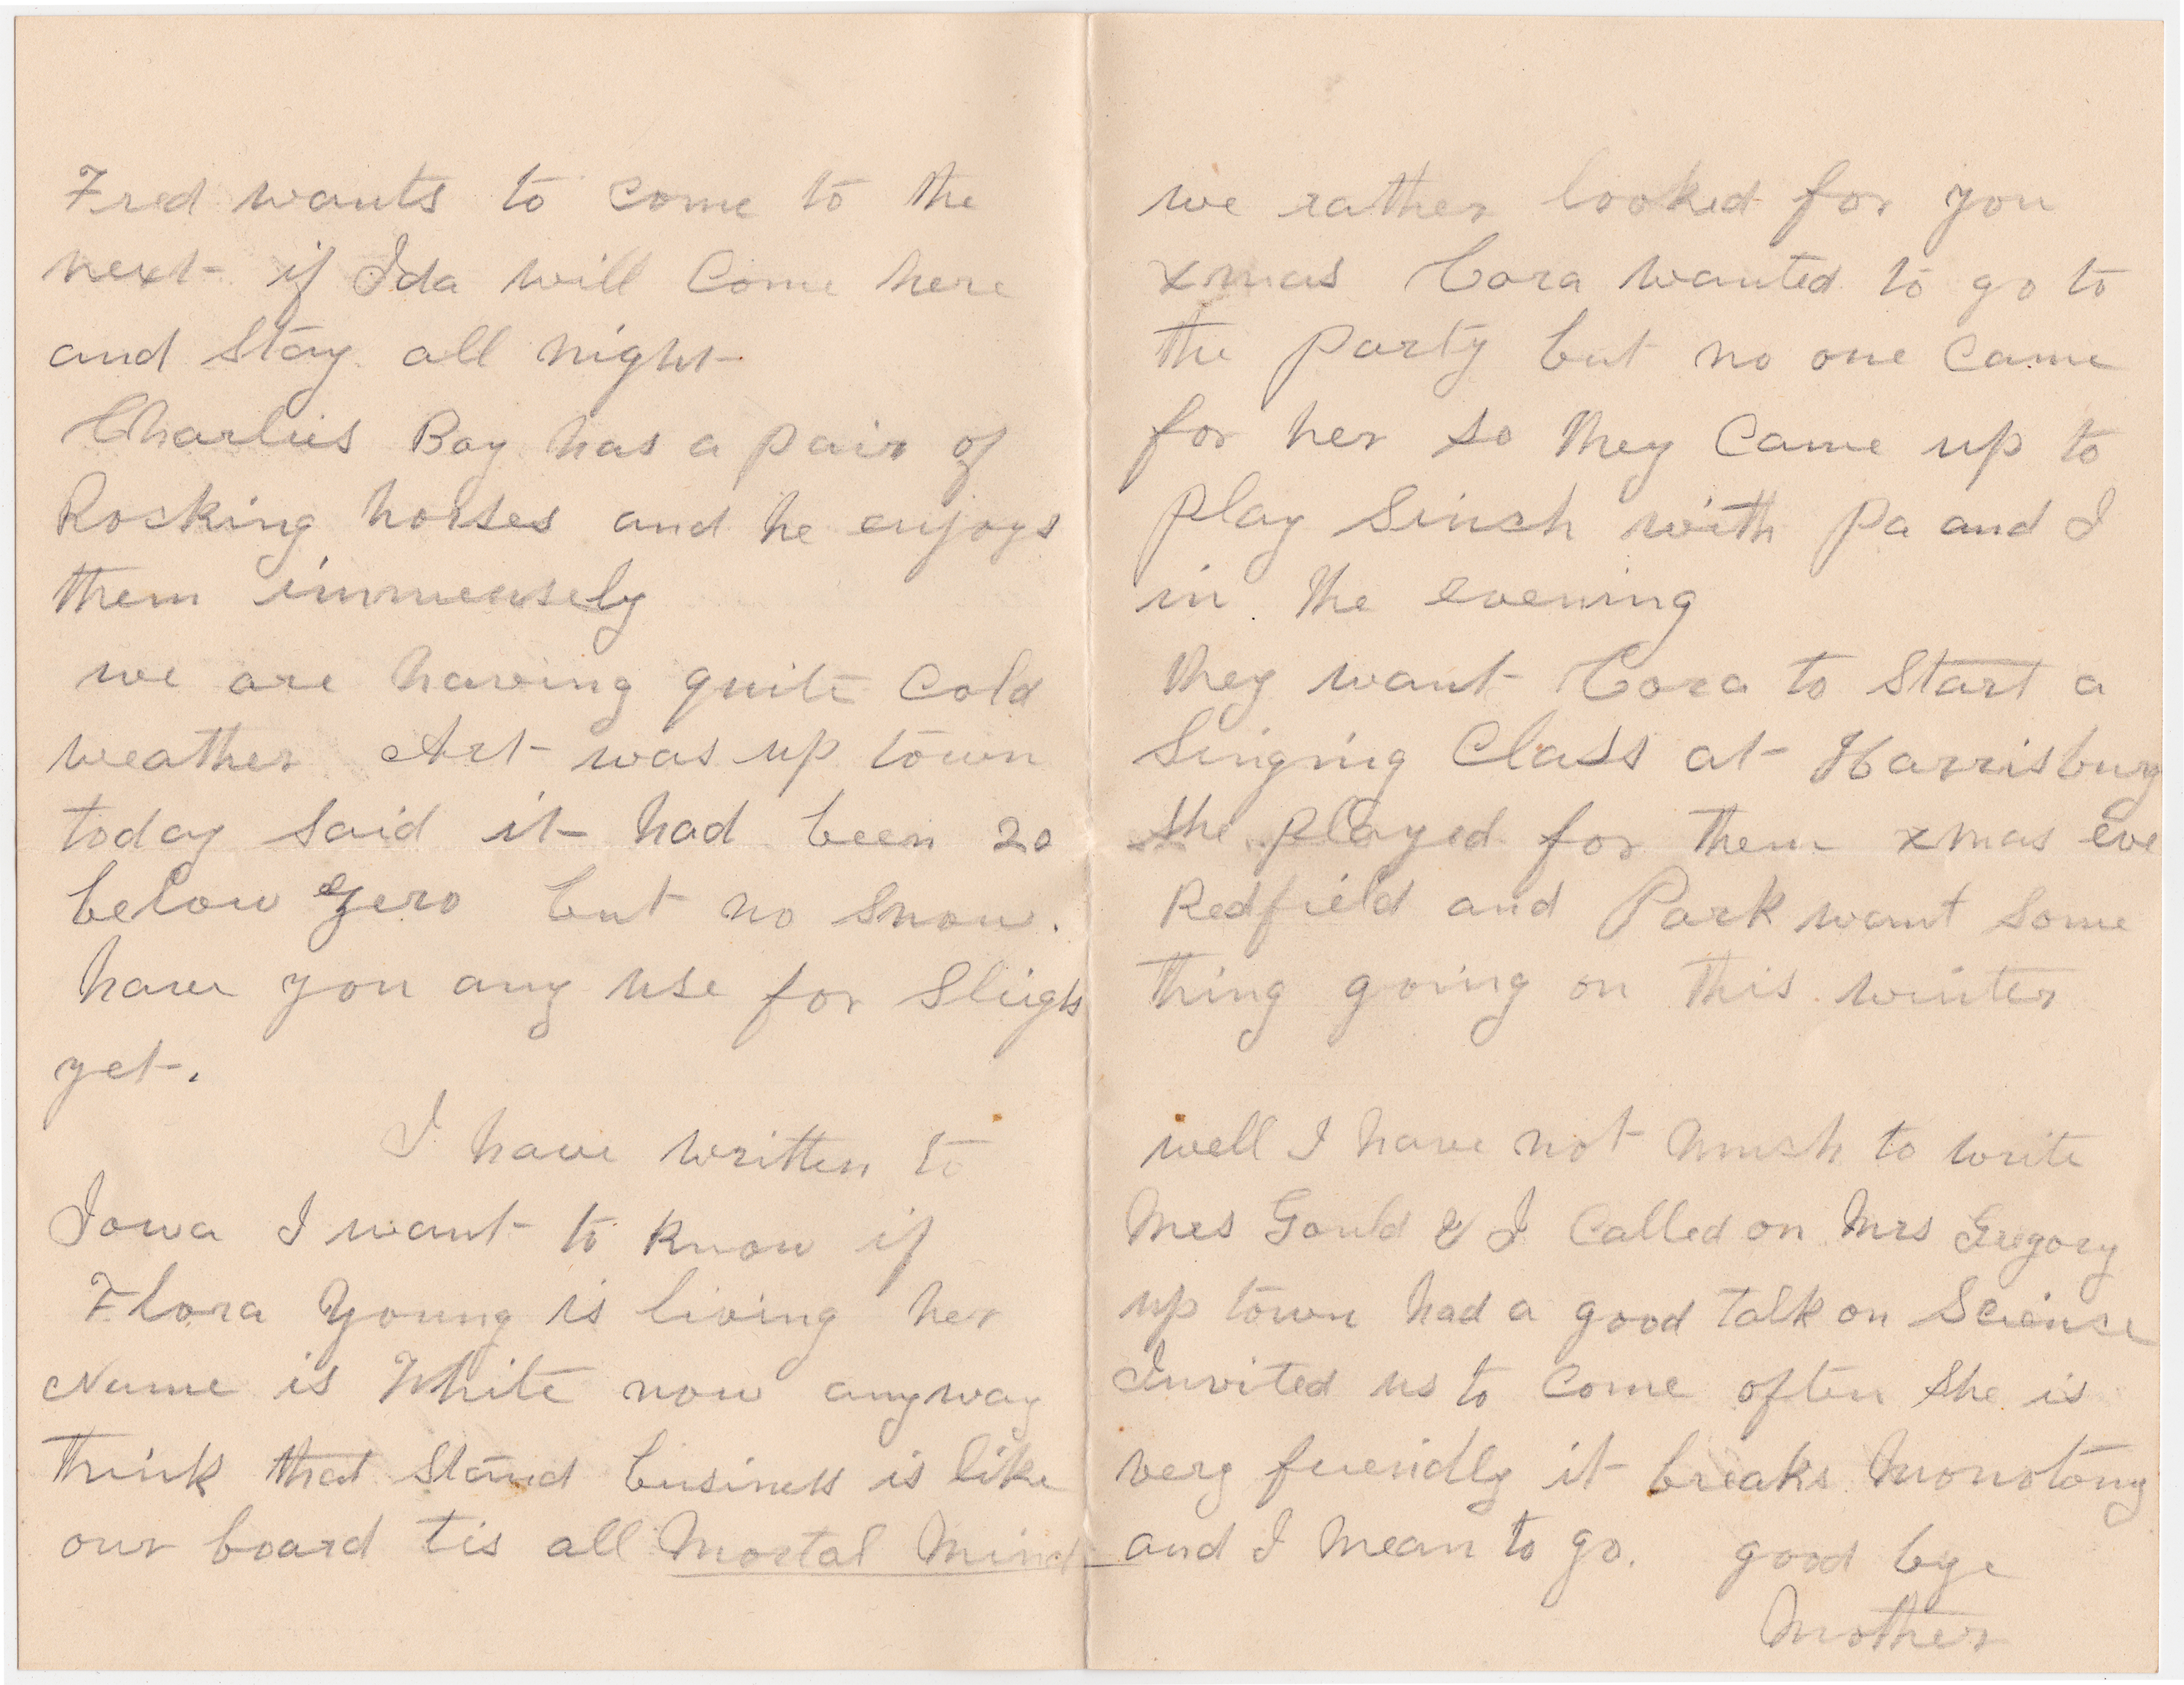 Fred wants to come to the
next if Ida will Come here
and Stay all night
Charlies Boy has a pair of
Rocking horses and he enjoys
them immensely
we are having quite Cold
weather Art was up town
today Said it had been 20
below zero but no Snow.
have you any use for Sleigh
yet.
I have written to
Iowa I want to know if
Flora Young is living her
Name is White now anyway
think that Stand business is like
our board tis all Mortal Mind
we rather looked for you
xmas Cora wanted to go to
the party but no one Came
for her so they Came up to
play Sinch with Pa and I
in the evening
they want Cora to Start a
Singing Class at Harrisburg
she played for them xmas eve
Redfield and Park want Some
thing going on this winter
well I have not much to write
Mrs Gould & I Called on Mrs Gregory
up town had a good talk on Science
Invited us to Come often She is
very friendly it breaks Monotony
and I Mean to go. good bye
Mother